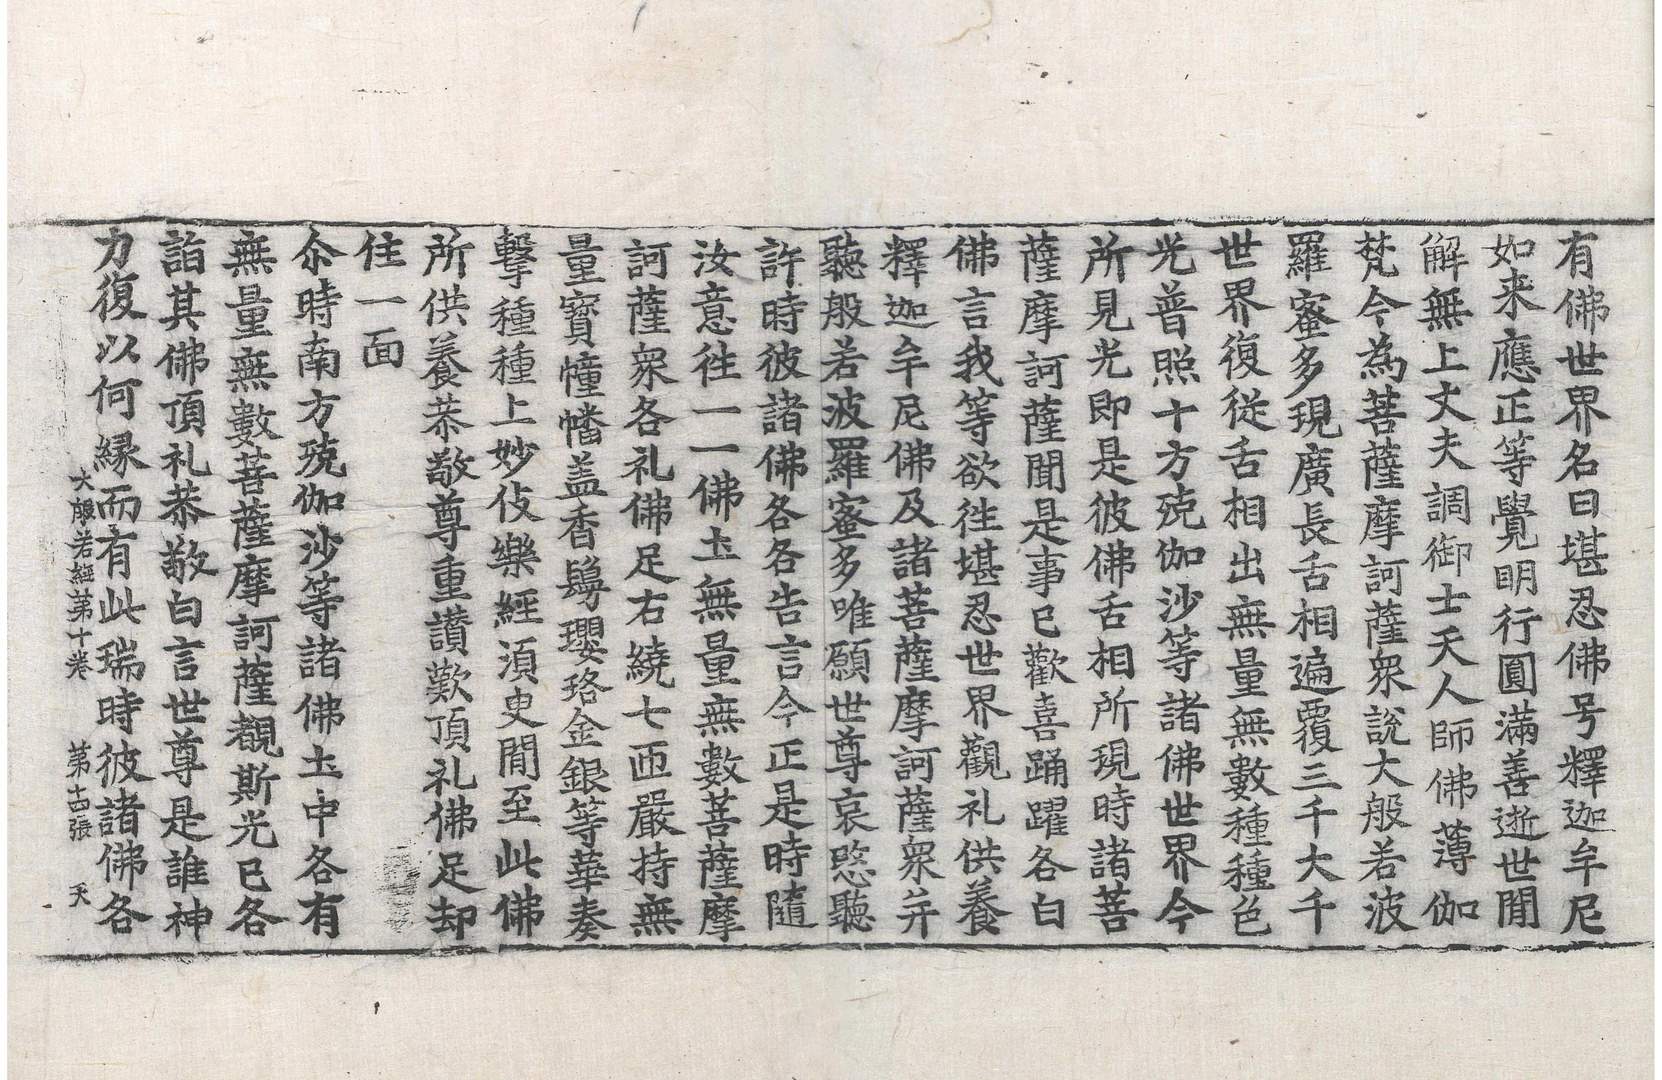 有佛世界名曰堪忍佛号釋迦牟尼
如来應正等覺明行圓滿善逝世閒
解無上丈夫調御士天人師佛薄伽
梵今為菩薩摩訶薩衆說大般若波
羅蜜多現廣長舌相遍覆三千大千
世界復從舌相出無量無數種種色
光普照十方殑伽沙等諸佛世界今
所見光即是彼佛舌相所現時諸菩
薩摩訶薩聞是事已歡喜踊躍各白
佛言我等欲徃堪忍世界觀礼供養
釋迦牟尼佛及諸菩薩摩訶薩衆并
聽般若波羅蜜多唯願世尊哀愍聽
許時彼諸佛各各告言今正是時隨
汝意徃一一佛圡無量無數菩薩摩
訶薩衆各礼佛足右繞七匝嚴持無
量寶幢幡盖香鬘瓔珞金銀等華奏
擊種種上妙伎樂經湏臾閒至此佛
所供養恭敬尊重讃歎頂礼佛足却
住一面
尒時南方殑伽沙等諸佛圡中各有
無量無數菩薩摩訶薩覩斯光已各
詣其佛頂礼恭敬白言世尊是誰神
力復以何縁而有此瑞時彼諸佛各
大般若經第十卷 第十四張 天